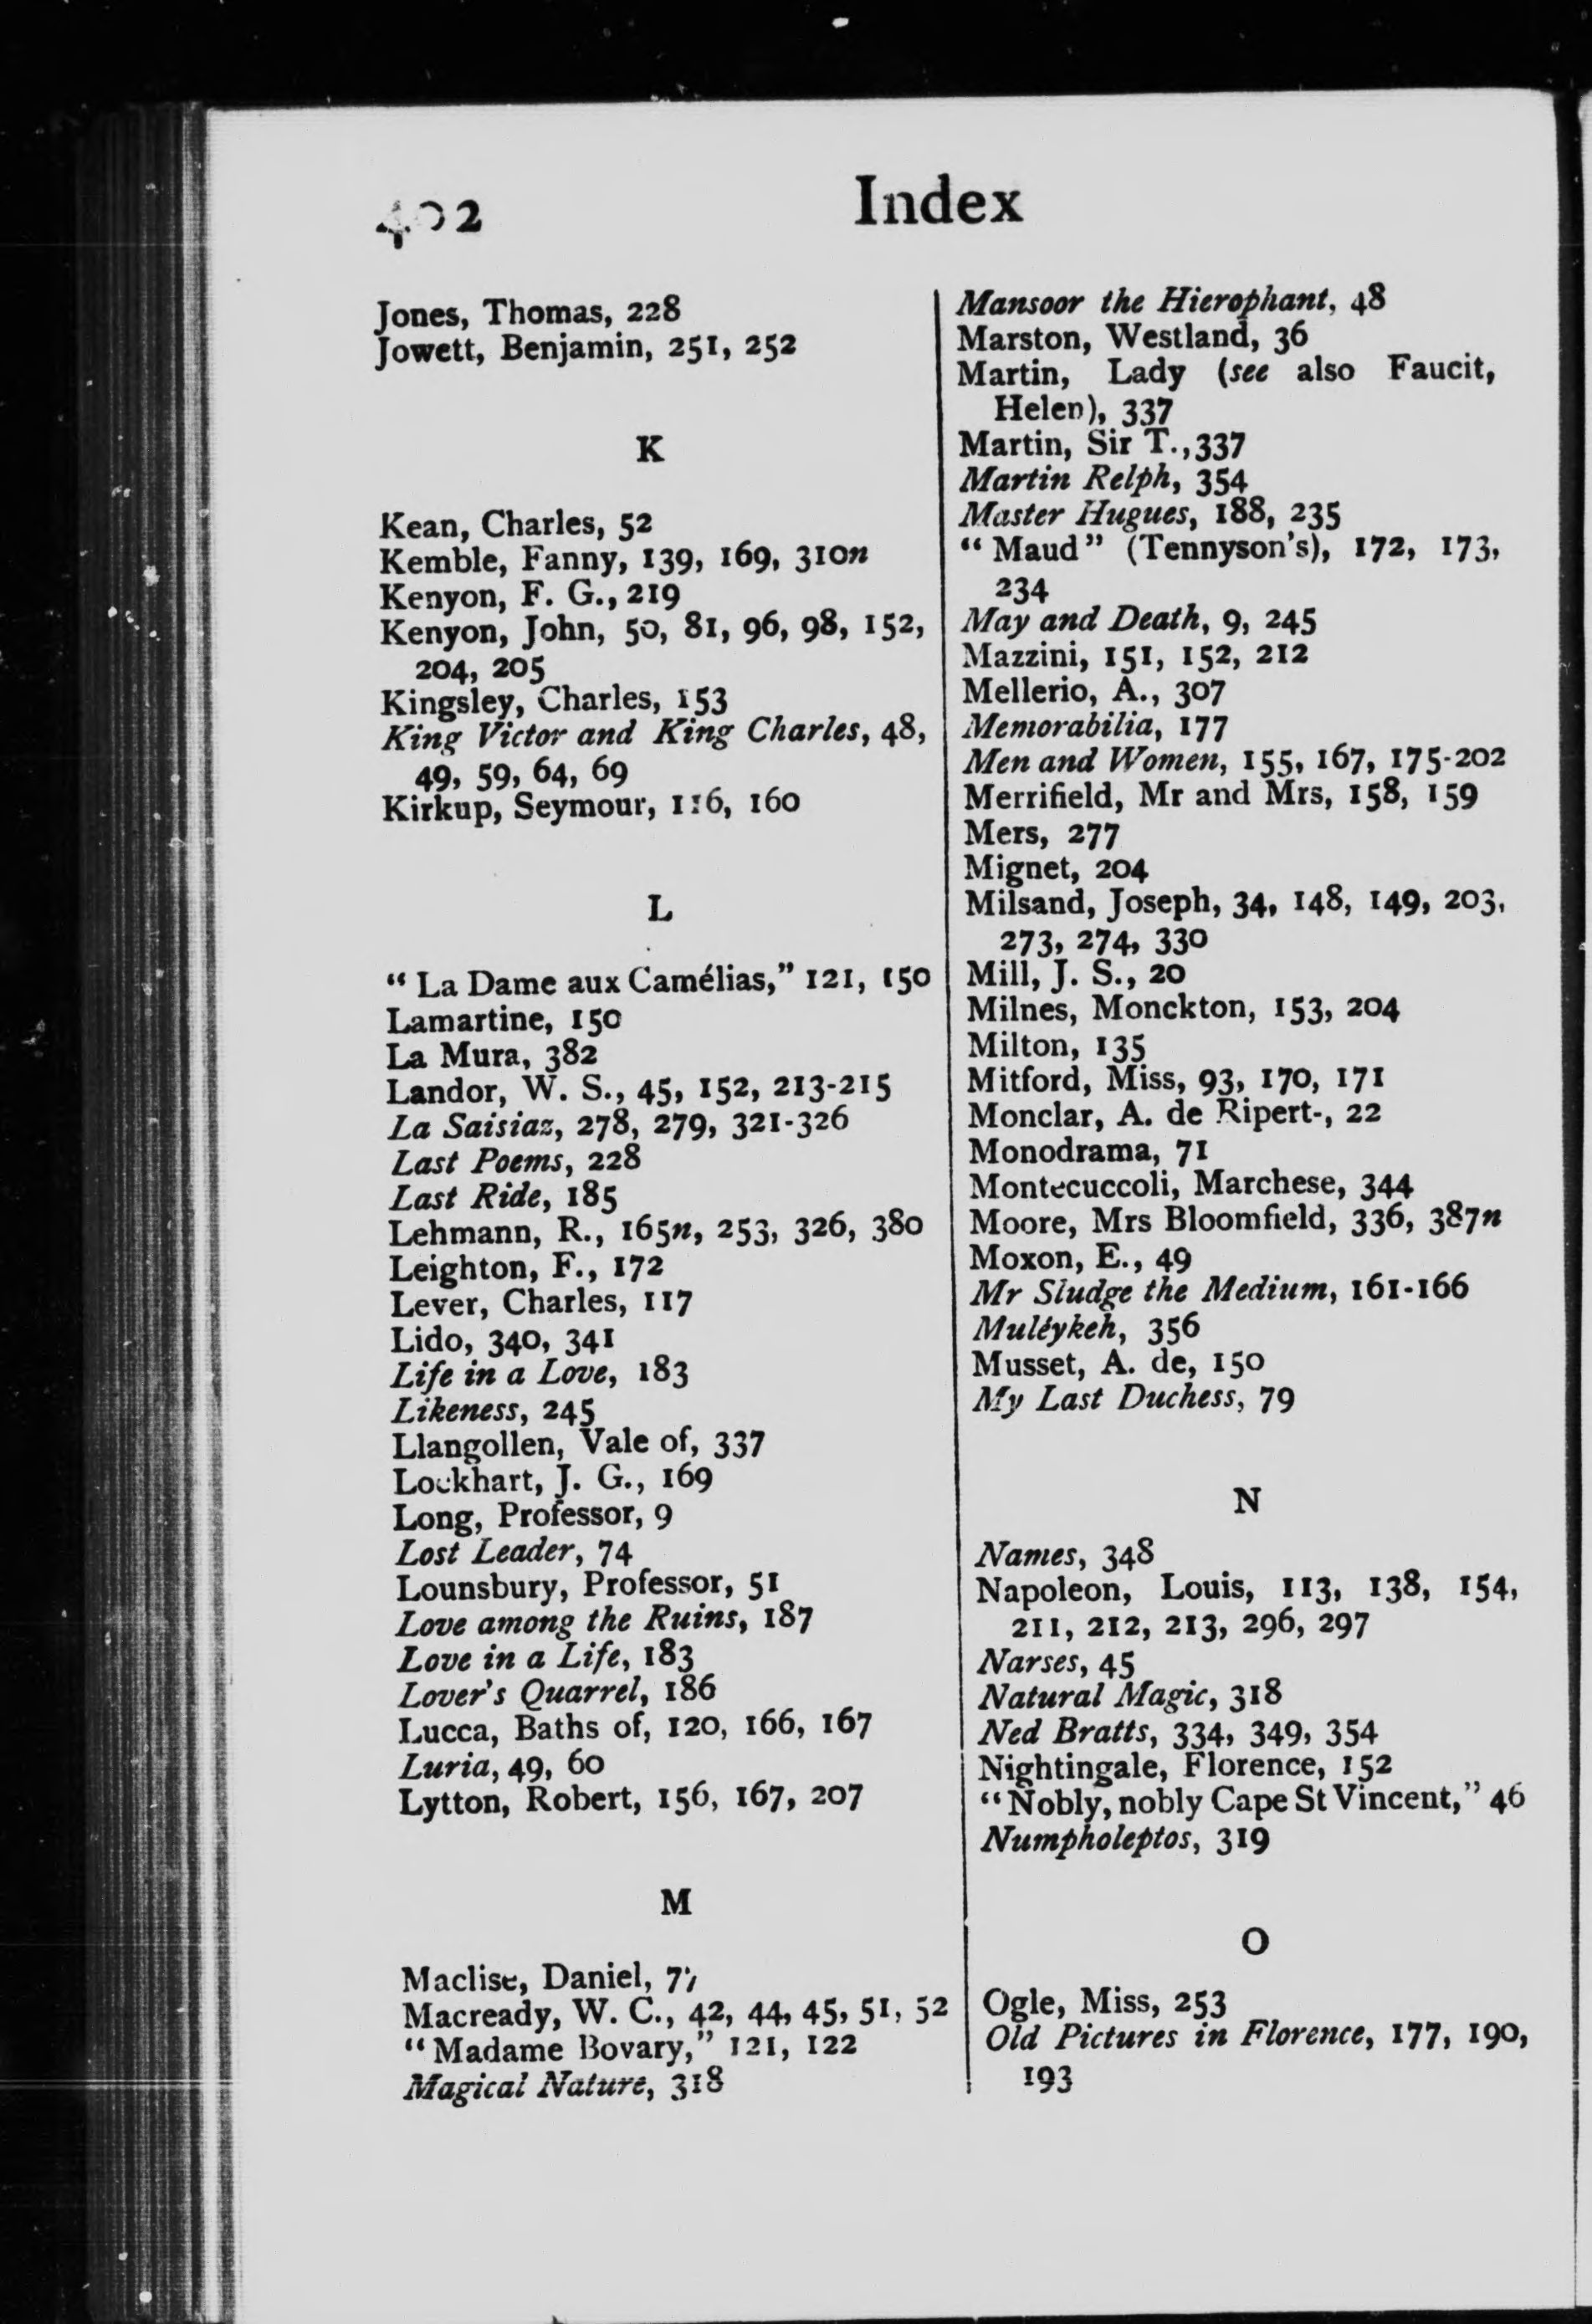 402
Index
Jones, Thomas, 228
Jowett, Benjamin, 251, 252
K
Kean, Charles, 52
Kemble, Fanny, 139, 169, 310n
Kenyon, F. G., 219
Kenyon, John, 50, 81, 96, 98, 152,
204, 205
Kingsley, Charles, 153
King Victor and King Charles, 48,
49, 59, 64, 69
Kirkup, Seymour, 116, 160
L
“ La Dame aux Camélias,” 121, 150
Lamartine, 150
La Mura, 382
Landor, W. S., 45, 152, 213-215
La Saisiaz, 278, 279, 321-326
Last Poems, 228
Last Ride, 185
Lehmann, R., 165n, 253, 326, 380
Leighton, F., 172
Lever, Charles, 117
Lido, 340, 341
Life in a Love, 183
Likeness, 245
Llangollen, Vale of, 337
Lockhart, J. G., 169
Long, Professor, 9
Lost Leader, 74
Lounsbury, Professor, 51
Love among the Ruins, 187
Love in a Life, 183
Lover's Quarrel, 186
Lucca, Baths of, 120, 166, 167
Luria, 49, 60
Lytton, Robert, 156, 167, 207
M
Maclise, Daniel,
Macready, W. C., 42, 44, 45, 51, 52
“ Madame Bovary,” 121, 122
Magical Nature, 318
Mansoor the Hierophant, 48
Marston, Westland, 36
Martin, Lady (see also Faucit,
Helen), 337
Martin, Sir T., 337
Martin Relph, 354
Master Hugues, 188, 235
“ Maud” (Tennyson's), 172, 173,
234
May and Death, 9, 245
Mazzini, 151, 152, 212
Mellerio, A., 307
Memorabilia, 177
Men and Women, 155, 167, 175-202
Merrifield, Mr and Mrs, 158, 159
Mers, 277
Mignet, 204
Milsand, Joseph, 34, 148, 149, 203,
273, 274, 330
Mill, J. S., 20
Milnes, Monckton, 153, 204
Milton, 135
Mitford, Miss, 93, 170, 171
Monclar, A. de Ripert-, 22
Monodrama, 71
Montecuccoli, Marchese, 344
Moore, Mrs Bloomfield, 336, 387n
Moxon, E., 49
Mr Sludge the Medium, 161-166
Muléykeh, 356
Musset, A. de, 150
My Last Duchess, 79
N
Names, 348
Napoleon, Louis, 113, 138, 154,
211, 212, 213, 296, 297
Narses, 45
Natural Magic, 318
Ned Bratts, 334, 349, 354
Nightingale, Florence, 152
“Nobly, nobly Cape St Vincent,” 46
Numpholeptos, 319
O
Ogle, Miss, 253
Old Pictures in Florence, 177, 190,
193